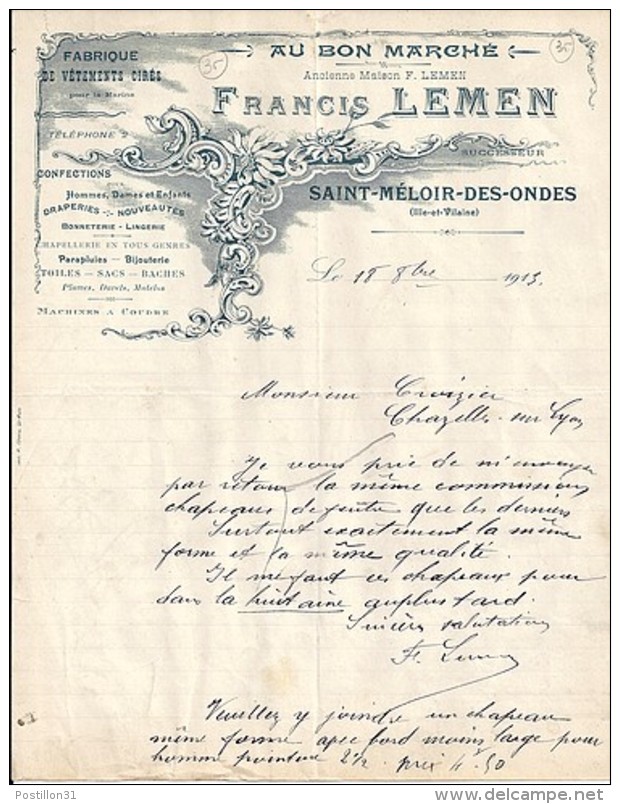 35
AU BON MARCHÉ
35
Ancienne Maison F. LEMEN
FRANCIS LEMEN
SUCCESSEUR
SAINT-MÉLOIR-DES-ONDES
(Ille-et-Vilaine)
FABRIQUE
DE VÊTEMENTS CIRÉS
pour la Marine
TÉLÉPHONE 2
CONFECTIONS
POUR
Hommes, Dames et Enfants
DRAPERIES - NOUVEAUTÉS
BONNETERIE - LINGERIE
CHAPELLERIE EN TOUS GENRES
Parapluies — Bijouterie
TOILES — SACS — BACHES
Plumes, Duvets, Matelas
MACHINES A COUDRE
Le 18 8bre 1913.
Monsieur Croizier
Chazelles-sur Lyon
Je vous prie de m'envoyer
par retour la même commissions
chapeaux de feutre que les derniers
Surtout exactement la même
forme et la même qualité.
Il me faut ces chapeaux pour
dans la huitaine au plus tard.
Sincères salutations
F. Lemen
Veuillez y joindre un chapeau
même forme avec bord moins large pour
homme pointure 2½ prix 4f50
Postillon31